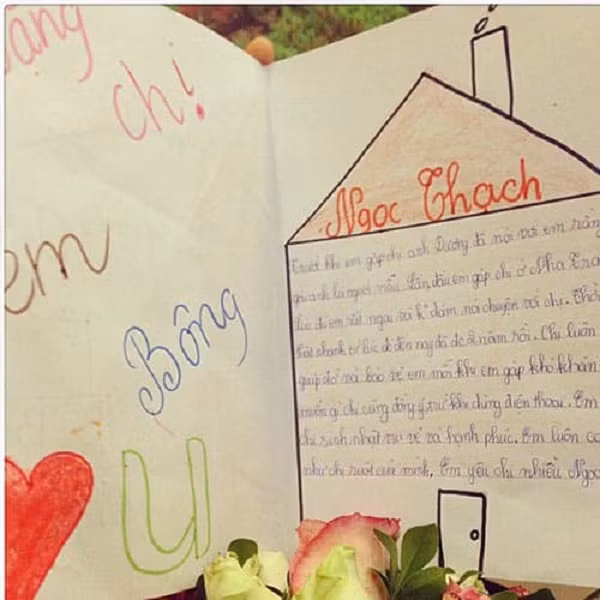 ang
chị!
em
Bông
U
Ngọc Thạch
Trước khi em gặp chị anh Dương đã nói với em rằng
anh là người nấu. Lần đầu em gặp chị ở Nha Tra
lúc đó em rất ngại và k dám nói chuyện với chị. Thời
rất nhanh từ lúc đó đến nay đã đc 2 năm rồi. Chị luôn
giúp đỡ và bảo vệ em mỗi khi em gặp khó khăn
muốn gì chị cũng đồng ý trừ khi dùng điện thoại. Em
chị sinh nhật vui vẻ và hạnh phúc. Em luôn co
như chị ruột của mình. Em yêu chị nhiều Ngọc